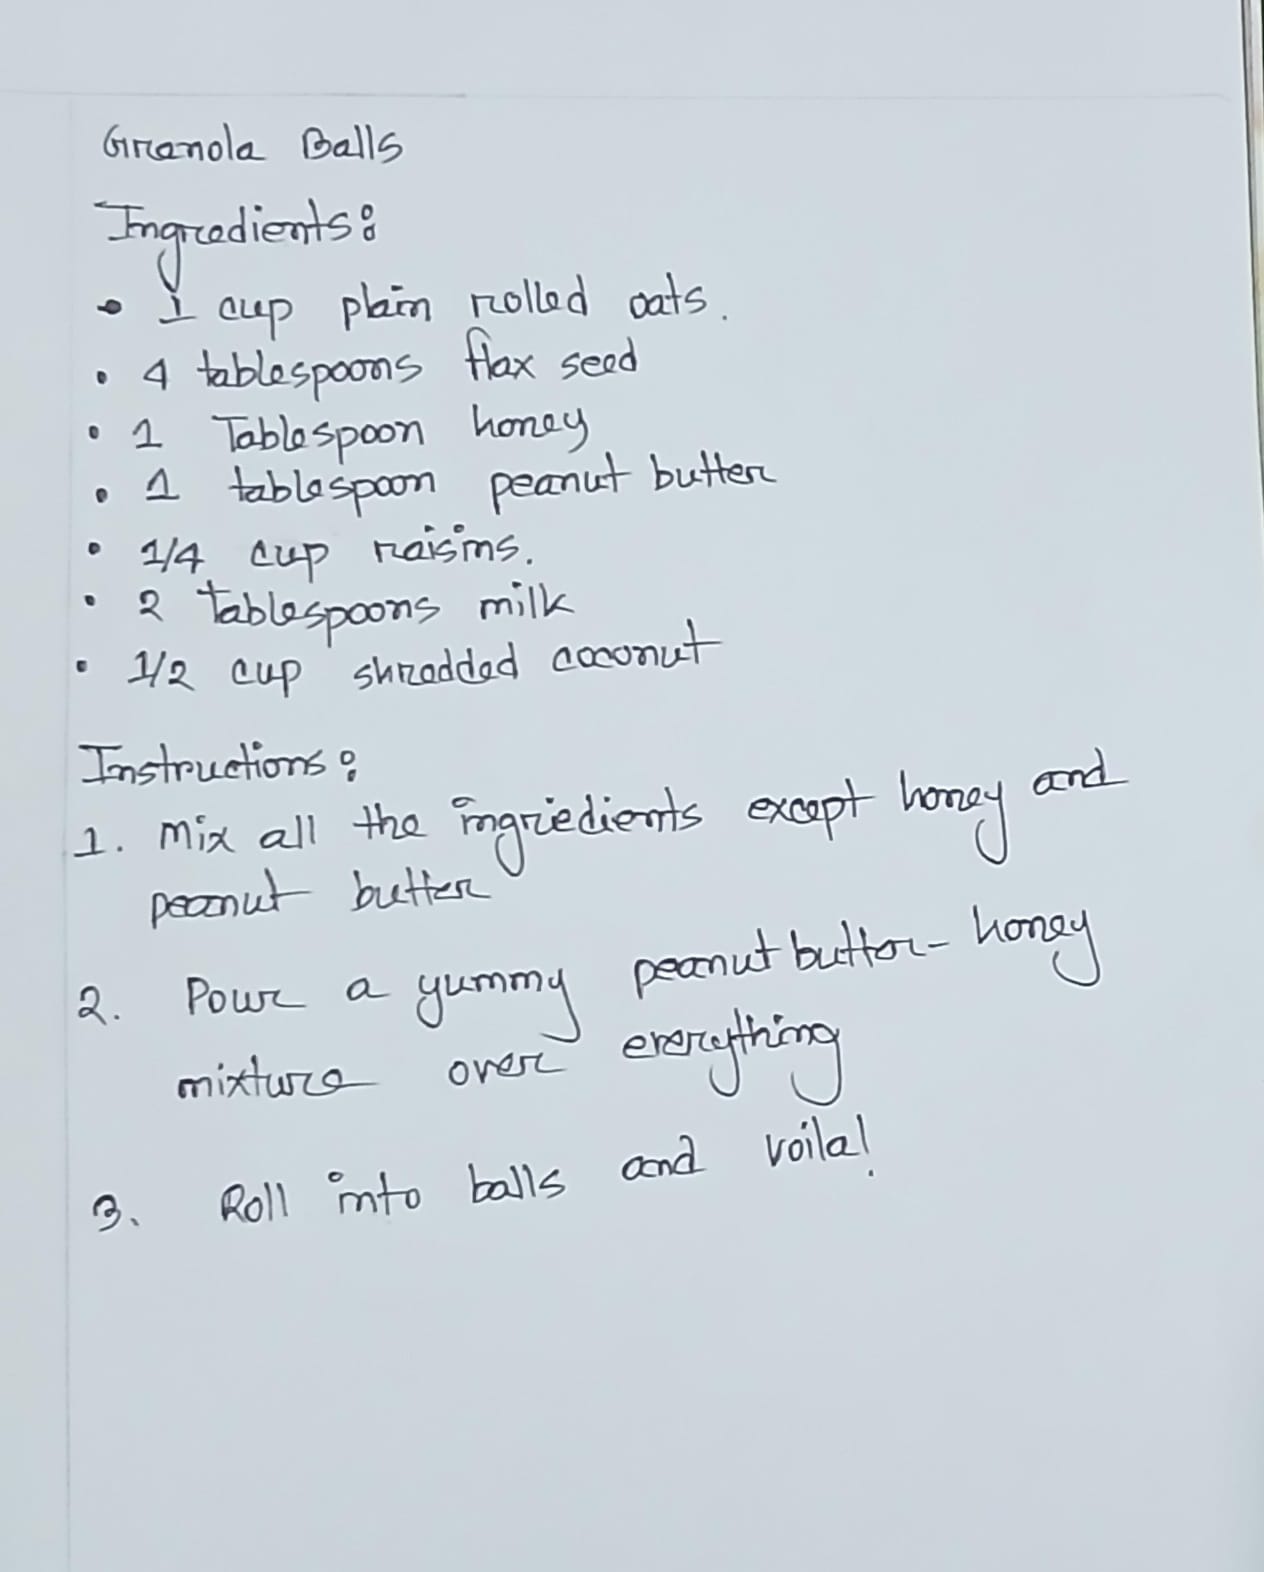 Granola Balls
Ingredients:
• 1 cup plain rolled oats.
• 4 tablespoons flax seed
• 1 Tablespoon honey
• 1 tablespoon peanut butter
• 1/4 cup raisins.
• 2 Tablespoons milk
• 1/2 cup shredded coconut
Instructions:
1. Mix all the ingriedients except honey and
peanut butter
2. Pour a yummy peanut butter-honey
mixture over everything
3. Roll into balls and voila!